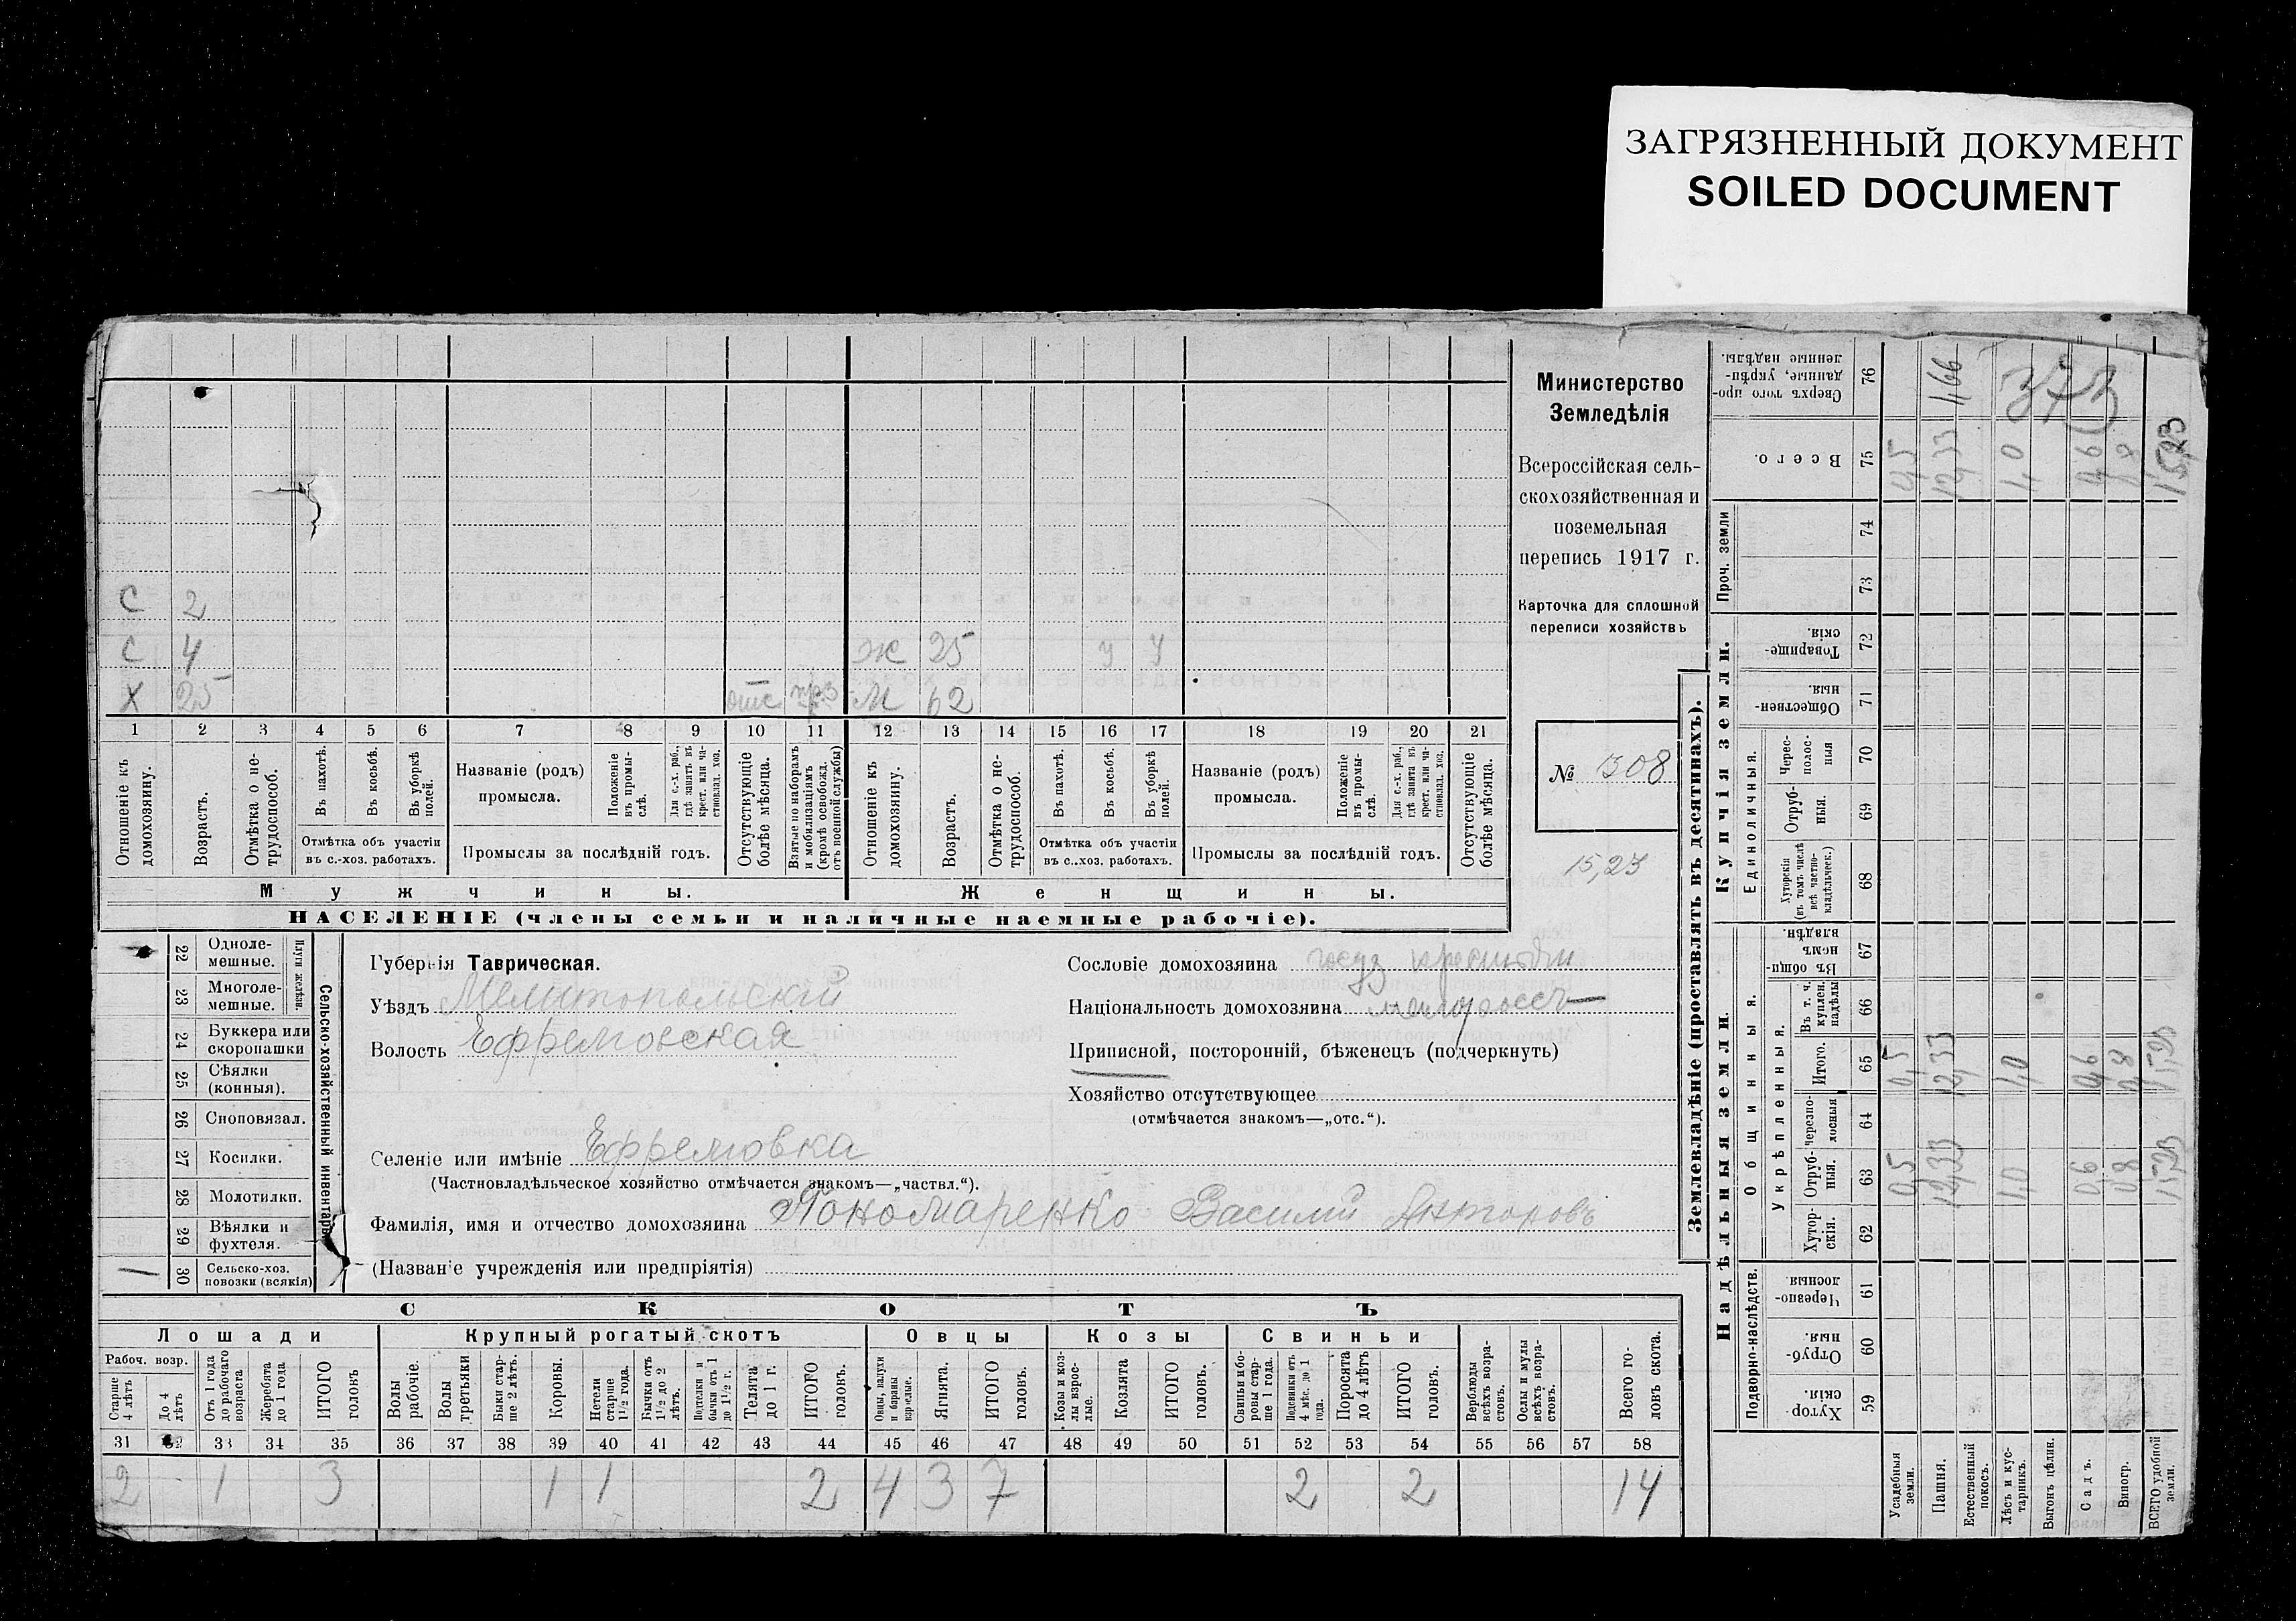 ЗАГРЯЗНЕННЫЙ ДОКУМЕНТ
SOILED DOCUMENT
Министерство
Земледѣлія
Всероссійская сель-
скохозяйственная и
поземельная
перепись 1917 г.
Карточка для сплошной
переписи хозяйствъ
№ 1308
15,23
С 2
С 4
Ж 25 У У
Х 25 отс М 62
1 2 3 4 5 6 7 8 9 10 11 12 13 14 15 16 17 18 19 20 21
Отношеніе къ домохозяину.
Возрастъ.
Отмѣтка о не-трудоспособ.
Въ пахотѣ.
Въ косьбѣ.
Въ уборкѣ полей.
Отмѣтка объ участіи
въ с.-хоз. работахъ.
Названіе (родъ)
промысла.
Положеніе въ промы-слѣ.
Для с.-х. раб., гдѣ занятъ въ крест. или ча-стновлад. хоз.
Промыслы за послѣдній годъ.
Отсутствующіе болѣе мѣсяца.
Взятые по наборамъ и мобилизаціямъ (кромѣ освобожд. отъ военной службы)
Отношеніе къ домохозяину.
Возрастъ.
Отмѣтка о не-трудоспособ.
Въ пахотѣ.
Въ косьбѣ.
Въ уборкѣ полей.
Отмѣтка объ участіи
въ с..хоз. работахъ.
Названіе (родъ)
промысла.
Положеніе въ промы-слѣ.
Для с.-х. раб., гдѣ занята въ крест. или ча-стновлад. хоз.
Промыслы за послѣдній годъ.
Отсутствующіе болѣе мѣсяца.
Мужчины.
Женщины.
НАСЕЛЕНІЕ (члены семьи и наличные наемные рабочіе).
22 Одноле-мешные.
23 Многоле-мешные.
24 Буккера или скоропашки
25 Сѣялки (конныя).
26 Сноповязал.
27 Косилки.
28 Молотилки.
29 Вѣялки и фухтеля.
30 Сельско-хоз. повозки (всякія)
Плуги желѣзн.
Сельско-хозяйственный инвентарь
Губернія Таврическая.
Уѣздъ Мелитопольскій
Волость Ефремовская
Селеніе или имѣніе Ефремовка
(Частновладѣльческое хозяйство отмѣчается знакомъ—„частвл.“).
Фамилія, имя и отчество домохозяина Пономаренко Василій
(Названіе учрежденія или предпріятія)
Сословіе домохозяина
Національность домохозяина малороссъ
Приписной, посторонній, бѣженецъ (подчеркнуть)
Хозяйство отсутствующее
(отмѣчается знакомъ—„отс.“).
СКОТЪ
Лошади
Крупный рогатый скотъ
Овцы
Козы
Свиньи
Рабоч. возр.
Старше 4 лѣтъ
До 4 лѣтъ
Отъ 1 года до рабочаго возраста
Жеребята до 1 года
ИТОГО головъ
Волы рабочіе.
Волы третьяки
Быки стар-ше 2 лѣтъ.
Коровы.
Нетели старше 1 1/2 года.
Бычки отъ 1 1/2 до 2 лѣтъ.
Подтелки и бычки отъ 1 до 1 1/2 г.
Телята до 1 г.
ИТОГО головъ.
Овцы, валухи и бараны взрослые.
Ягнята.
ИТОГО головъ.
Козы и коз-лы взрос-лые.
Козлята
ИТОГО головъ.
Свиньи и бо-ровы стар-ше 1 года.
Подсвинки отъ 4 мѣс. до 1 года.
Поросята до 4 лѣтъ
ИТОГО головъ.
Верблюды всѣхъ возра-стовъ.
Ослы и мулы всѣхъ возра-стовъ.
Всего го-ловъ скота.
31 32 33 34 35 36 37 38 39 40 41 42 43 44 45 46 47 48 49 50 51 52 53 54 55 56 57 58
2 1 3 1 1 2 4 3 7 2 2 14
Землевладѣніе (проставлять въ десятинахъ).
Надѣльныя земли.
Купчія земли.
Проч. земли
Подворно-наслѣдств.
Общинныя.
Укрѣпленныя.
Единоличныя.
Сверхъ того про-данные, укрѣп-ленные надѣлы. 76
Всего. 75
74
73
Товарище-скія. 72
Обществен-ныя. 71
Черес-полос-ныя 70
Отруб-ныя. 69
Хуторскія (въ томъ числѣ всѣ частно-владѣльческ.) 68
Въ общи-номъ владѣн. 67
Въ т. ч. куплен. надѣлы 66
Итого. 65
черезпо-лосныя 64
Отруб-ныя. 63
Хутор-скія. 62
Черезпо-лосныя 61
Отруб-ныя. 60
Хутор-скія. 59
Усадебныя земли.
Пашня.
Естественный покосъ.
Лѣсъ и кус-тарникъ.
Выгонъ цѣлин.
Садъ.
Виногр.
ВСЕГО удобной земли.
1,66
373
0,5 12,33 1,0 15,23
0,5 12,33 1,0 15,23
0,5 12,33 1,0 0,6 0,8 15,23